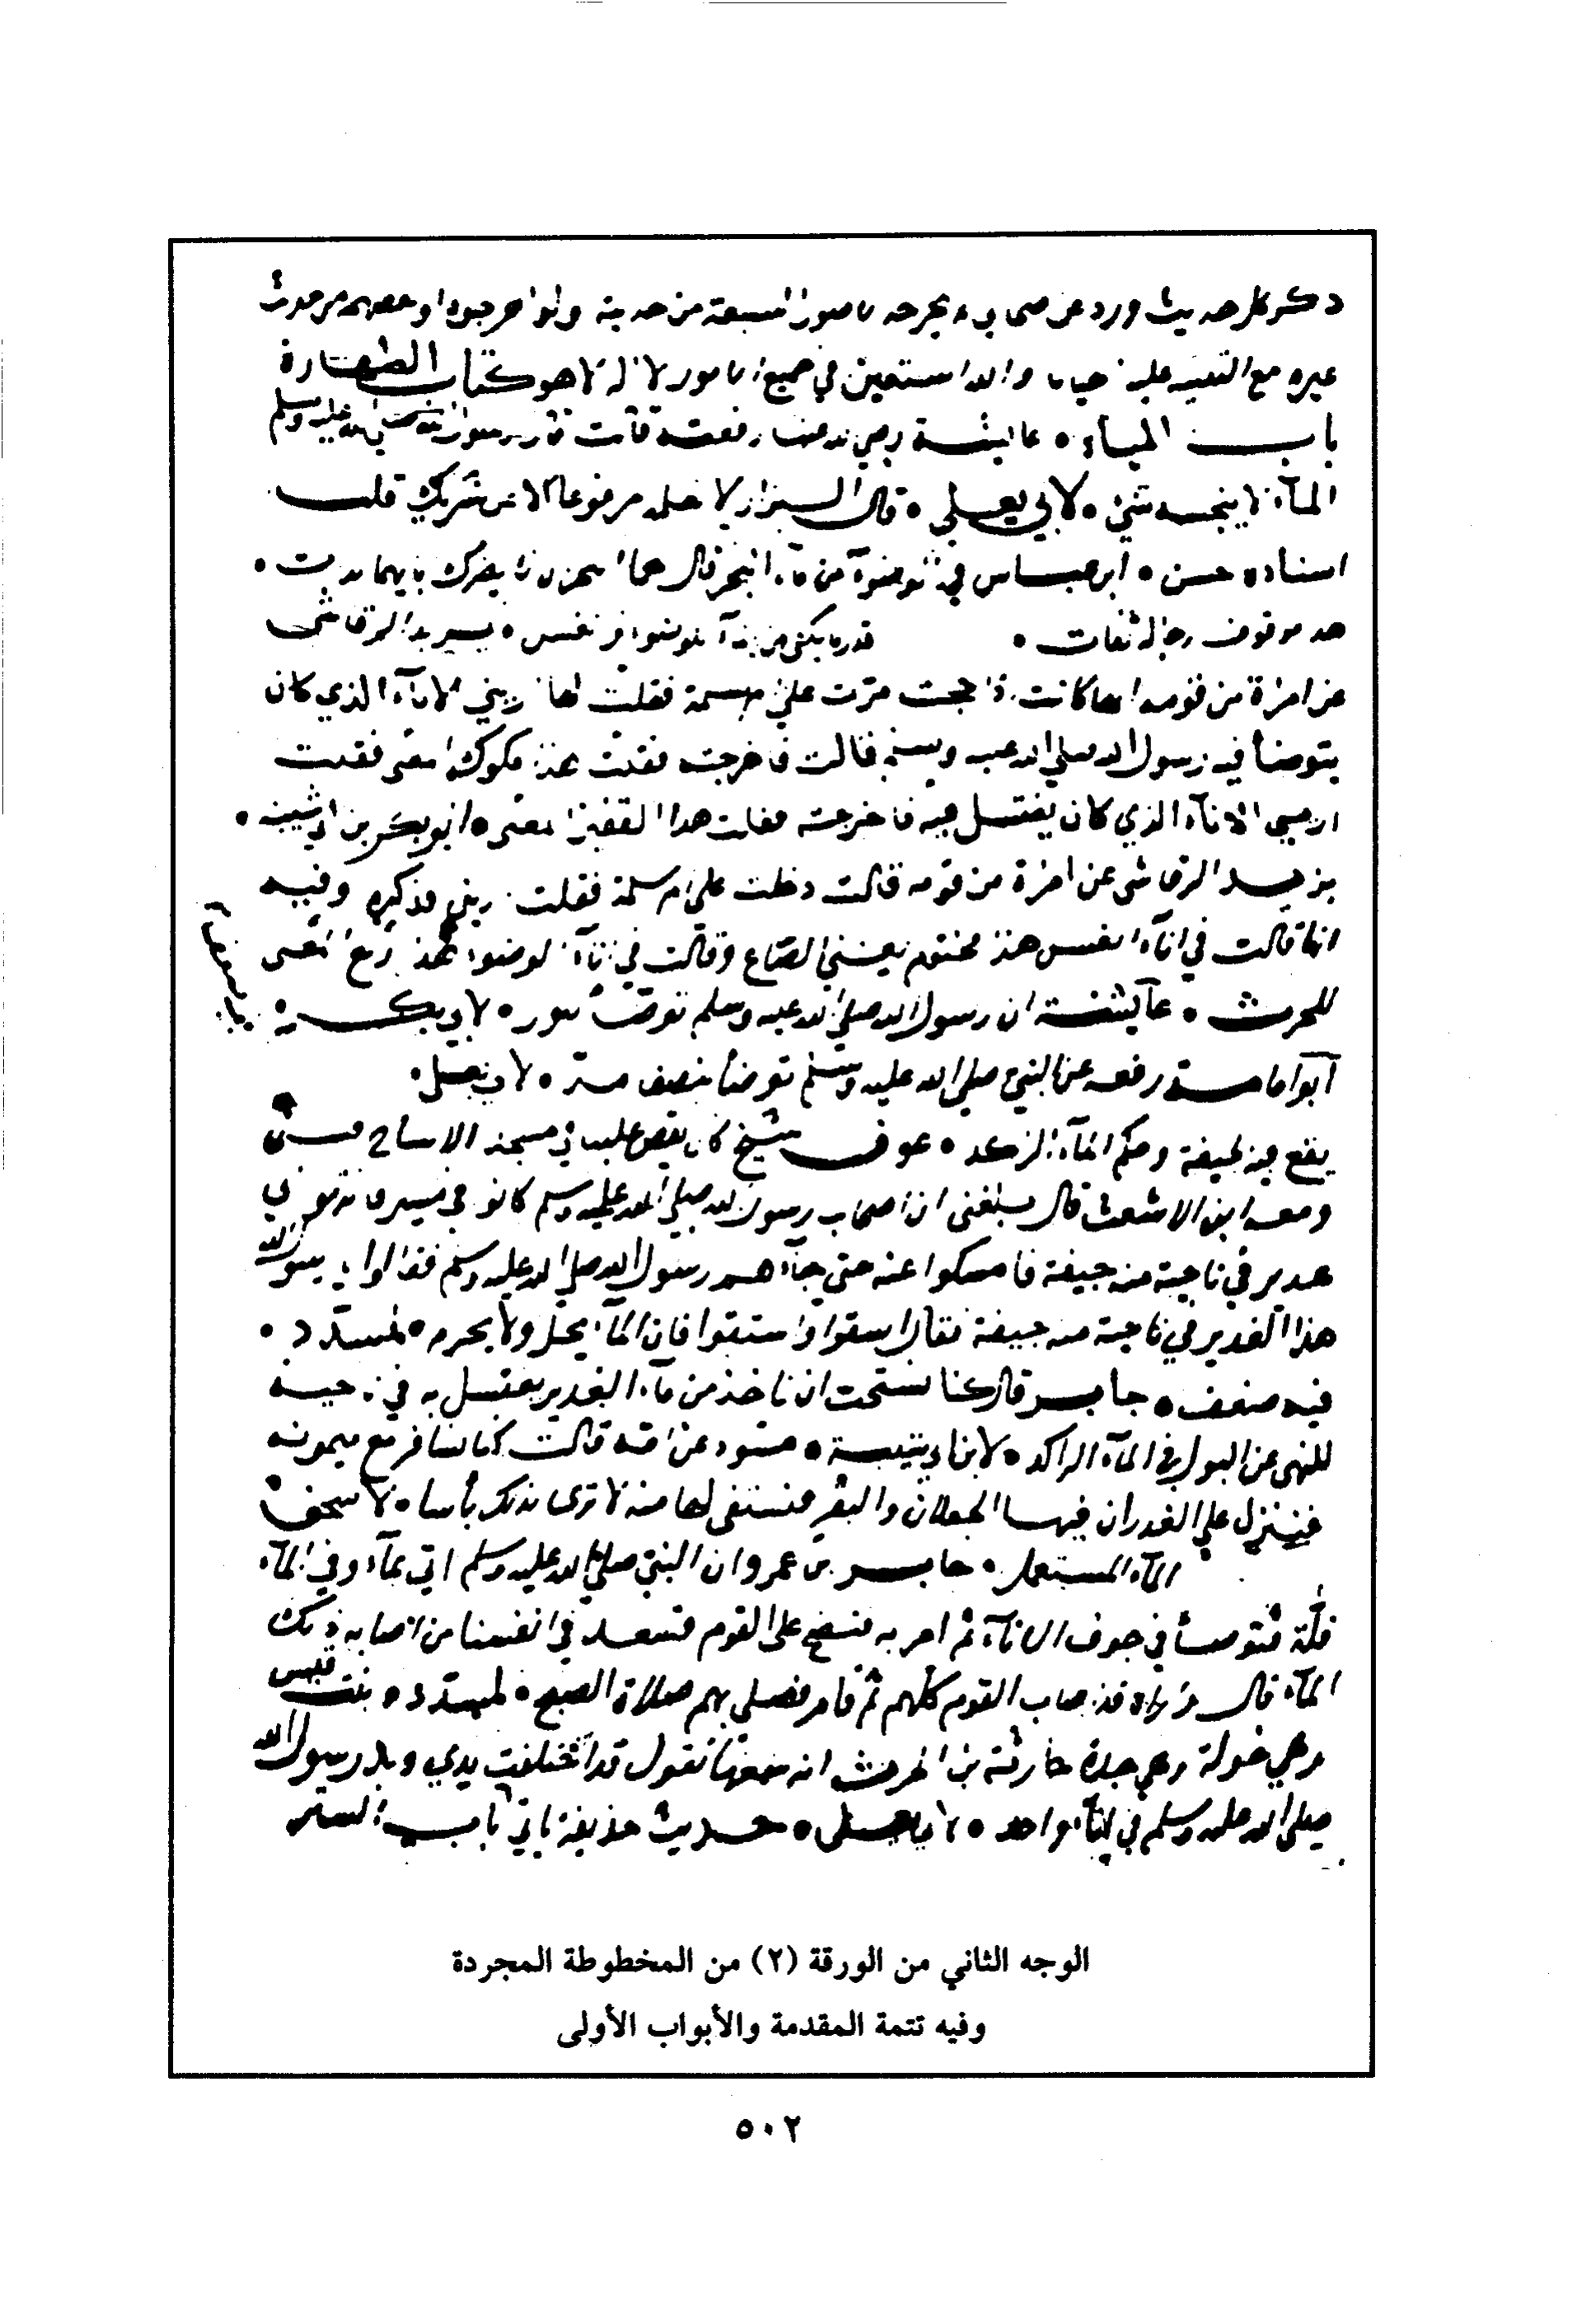 ذكر كل حديث ورد عن صحابي لم يخرجه الاصول السبعة من حديثه ولو اخرجوه او بعضهم من حديث
غيره مع التنبيه عليه احيانا والله استعين في جميع الامور لا اله الا هو كتاب الطهارة
باب المياه عائشة رضي الله عنها رفعته قالت قال رسول الله صلى الله عليه وسلم
المآء لا ينجسه شئ لابي يعلى قال البزار لا نعلمه مرفوعا الا عن شريك قلت
اسناده حسن ابن عباس في الوضوء من مآء البحر قال هما البحران لا يضرك بايهما بدات
هذا موقوف رجاله ثقات قدر ما يكفي من المآء للوضوء والغسل يزيد الرقاشي
عن امرأة من قومه انها كانت اذا حجت مرت على ام سلمة فقلت لها اريني الانآء الذي كان
يتوضأ فيه رسول الله صلى الله عليه وسلم قالت فاخرجته فقلت هذا مكوك المفتي فقلت
اريني الانآء الذي كان يغتسل فيه فاخرجته فقلت هذا القفيز المفتي ابو بكر بن ابي شيبة
يزيد الرقاشي عن امرأة من قومه قالت دخلت على ام سلمة فقلت اريني فذكره وفيه
انها قالت في انآء الغسل هذا مختوم يعني الصاع وقالت في انآء الوضوء هذا ربع المفتي
للحرث عآئشة ان رسول الله صلى الله عليه وسلم توضأ لابي بكر
ابو امامة رفعه عن النبي صلى الله عليه وسلم توضأ بنصف مد لابي يعلى
يقع فيه الجيفة وحكم المآء الراكد عوف شيخ كان يقص علينا في مسجد الاشياخ
ومعه ابن الاشعث قال بلغني ان اصحاب رسول الله صلى الله عليه وسلم كانوا في مسير فانتهوا الى
غدير في ناحية منه جيفة فامسكوا عنه حتى جآءهم رسول الله صلى الله عليه وسلم فقالوا يا رسول الله
هذا الغدير في ناحية منه جيفة فقال اسقوا واستقوا فان المآء يحل ولا يحرم لمسدد
فيه ضعف جابر قال كنا نستحب ان ناخذ من مآء الغدير يغتسل به في ناحية
للنهي عن البول في المآء الراكد لابن ابي شيبة منبوذ عن امه قالت كنا نسافر مع ميمونة
فننزل على الغدران فيها الجعلان والبعر فنستقي لها منه لا ترى بذلك بأسا لاسحق
المآء المستعمل عابد بن عمرو ان النبي صلى الله عليه وسلم اتي بمآء وفي المآء
قلة فتوضأ في جوف الانآء ثم امر به فنضح على القوم فسعد في انفسنا من اصابه ذلك
المآء قال ولا اراه قد اصاب القوم كلهم ثم قام فصلى بهم صلاة الصبح لمسدد بنت قيس
وهي خولة وهي جدة خارجة بن الحرث انه سمعها تقول قد اختلفت يدي ويد رسول الله
صلى الله عليه وسلم في انآء واحد لابي يعلى حديث حذيفة ياتي باب الستر
الوجه الثاني من الورقة (٢) من المخطوطة المجردة
وفيه تتمة المقدمة والأبواب الأولى
٥٠٢